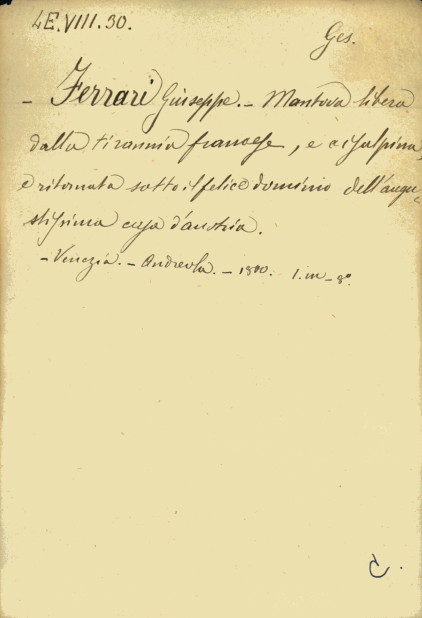 4E.VIII.30.
Ges.
- Ferrari Giuseppe. - Mantova libera
dalla tirannia francese, e cisalpina,
e ritornata sotto il felice dominio dell'augu-
stissima casa d'austria.
- Venezia. - Andreola. - 1800. 1. in - 8°.
C.